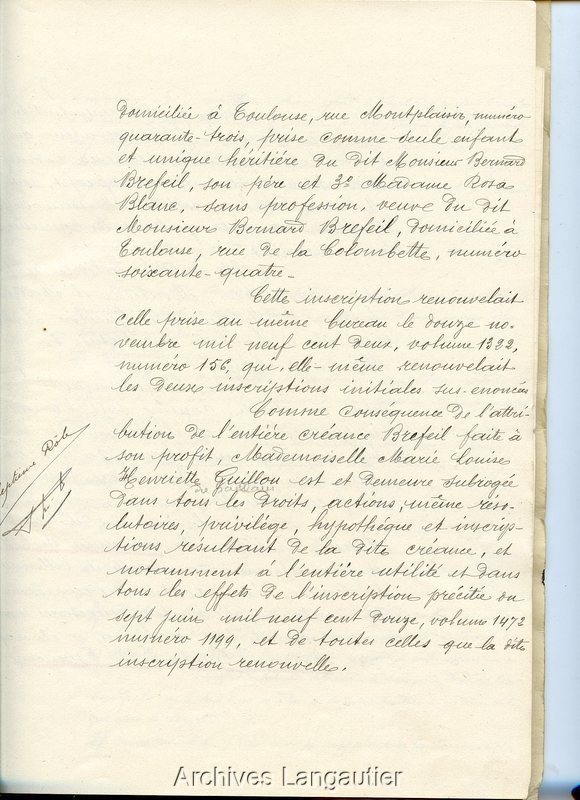 domiciliée à Toulouse, rue Montplaisir, numéro
quarante-trois, prise comme seule enfant
et unique héritière du dit Monsieur Bernard
Brefeil, son père et 3º Madame Rosa
Blanc, sans profession, veuve du dit
Monsieur Bernard Brefeil, domiciliée à
Toulouse, rue de la Colombette, numéro
soixante-quatre_
Cette inscription renouvelait
celle prise au même bureau le douze no-
vembre mil neuf cent deux, volume 1332,
numéro 156, qui, elle-même renouvelait
les deux inscriptions initiales sus-enoncées
Comme conséquence de l'attri-
bution de l'entière créance Brefeil faite à
son profit, Mademoiselle Marie Louise
Henriette Guillon est et demeure subrogée
dans tous les droits, actions, même réso-
lutoires, privilège, hypothèque et inscrip-
tions résultant de la dite créance, et
notamment à l'entière utilité et dans
tous les effets de l'inscription précitée du
sept juin mil neuf cent douze, volume 1472
numéro 1199, et de toutes celles que la dite
inscription renouvelle.
Septième Rôle
Archives Langautier